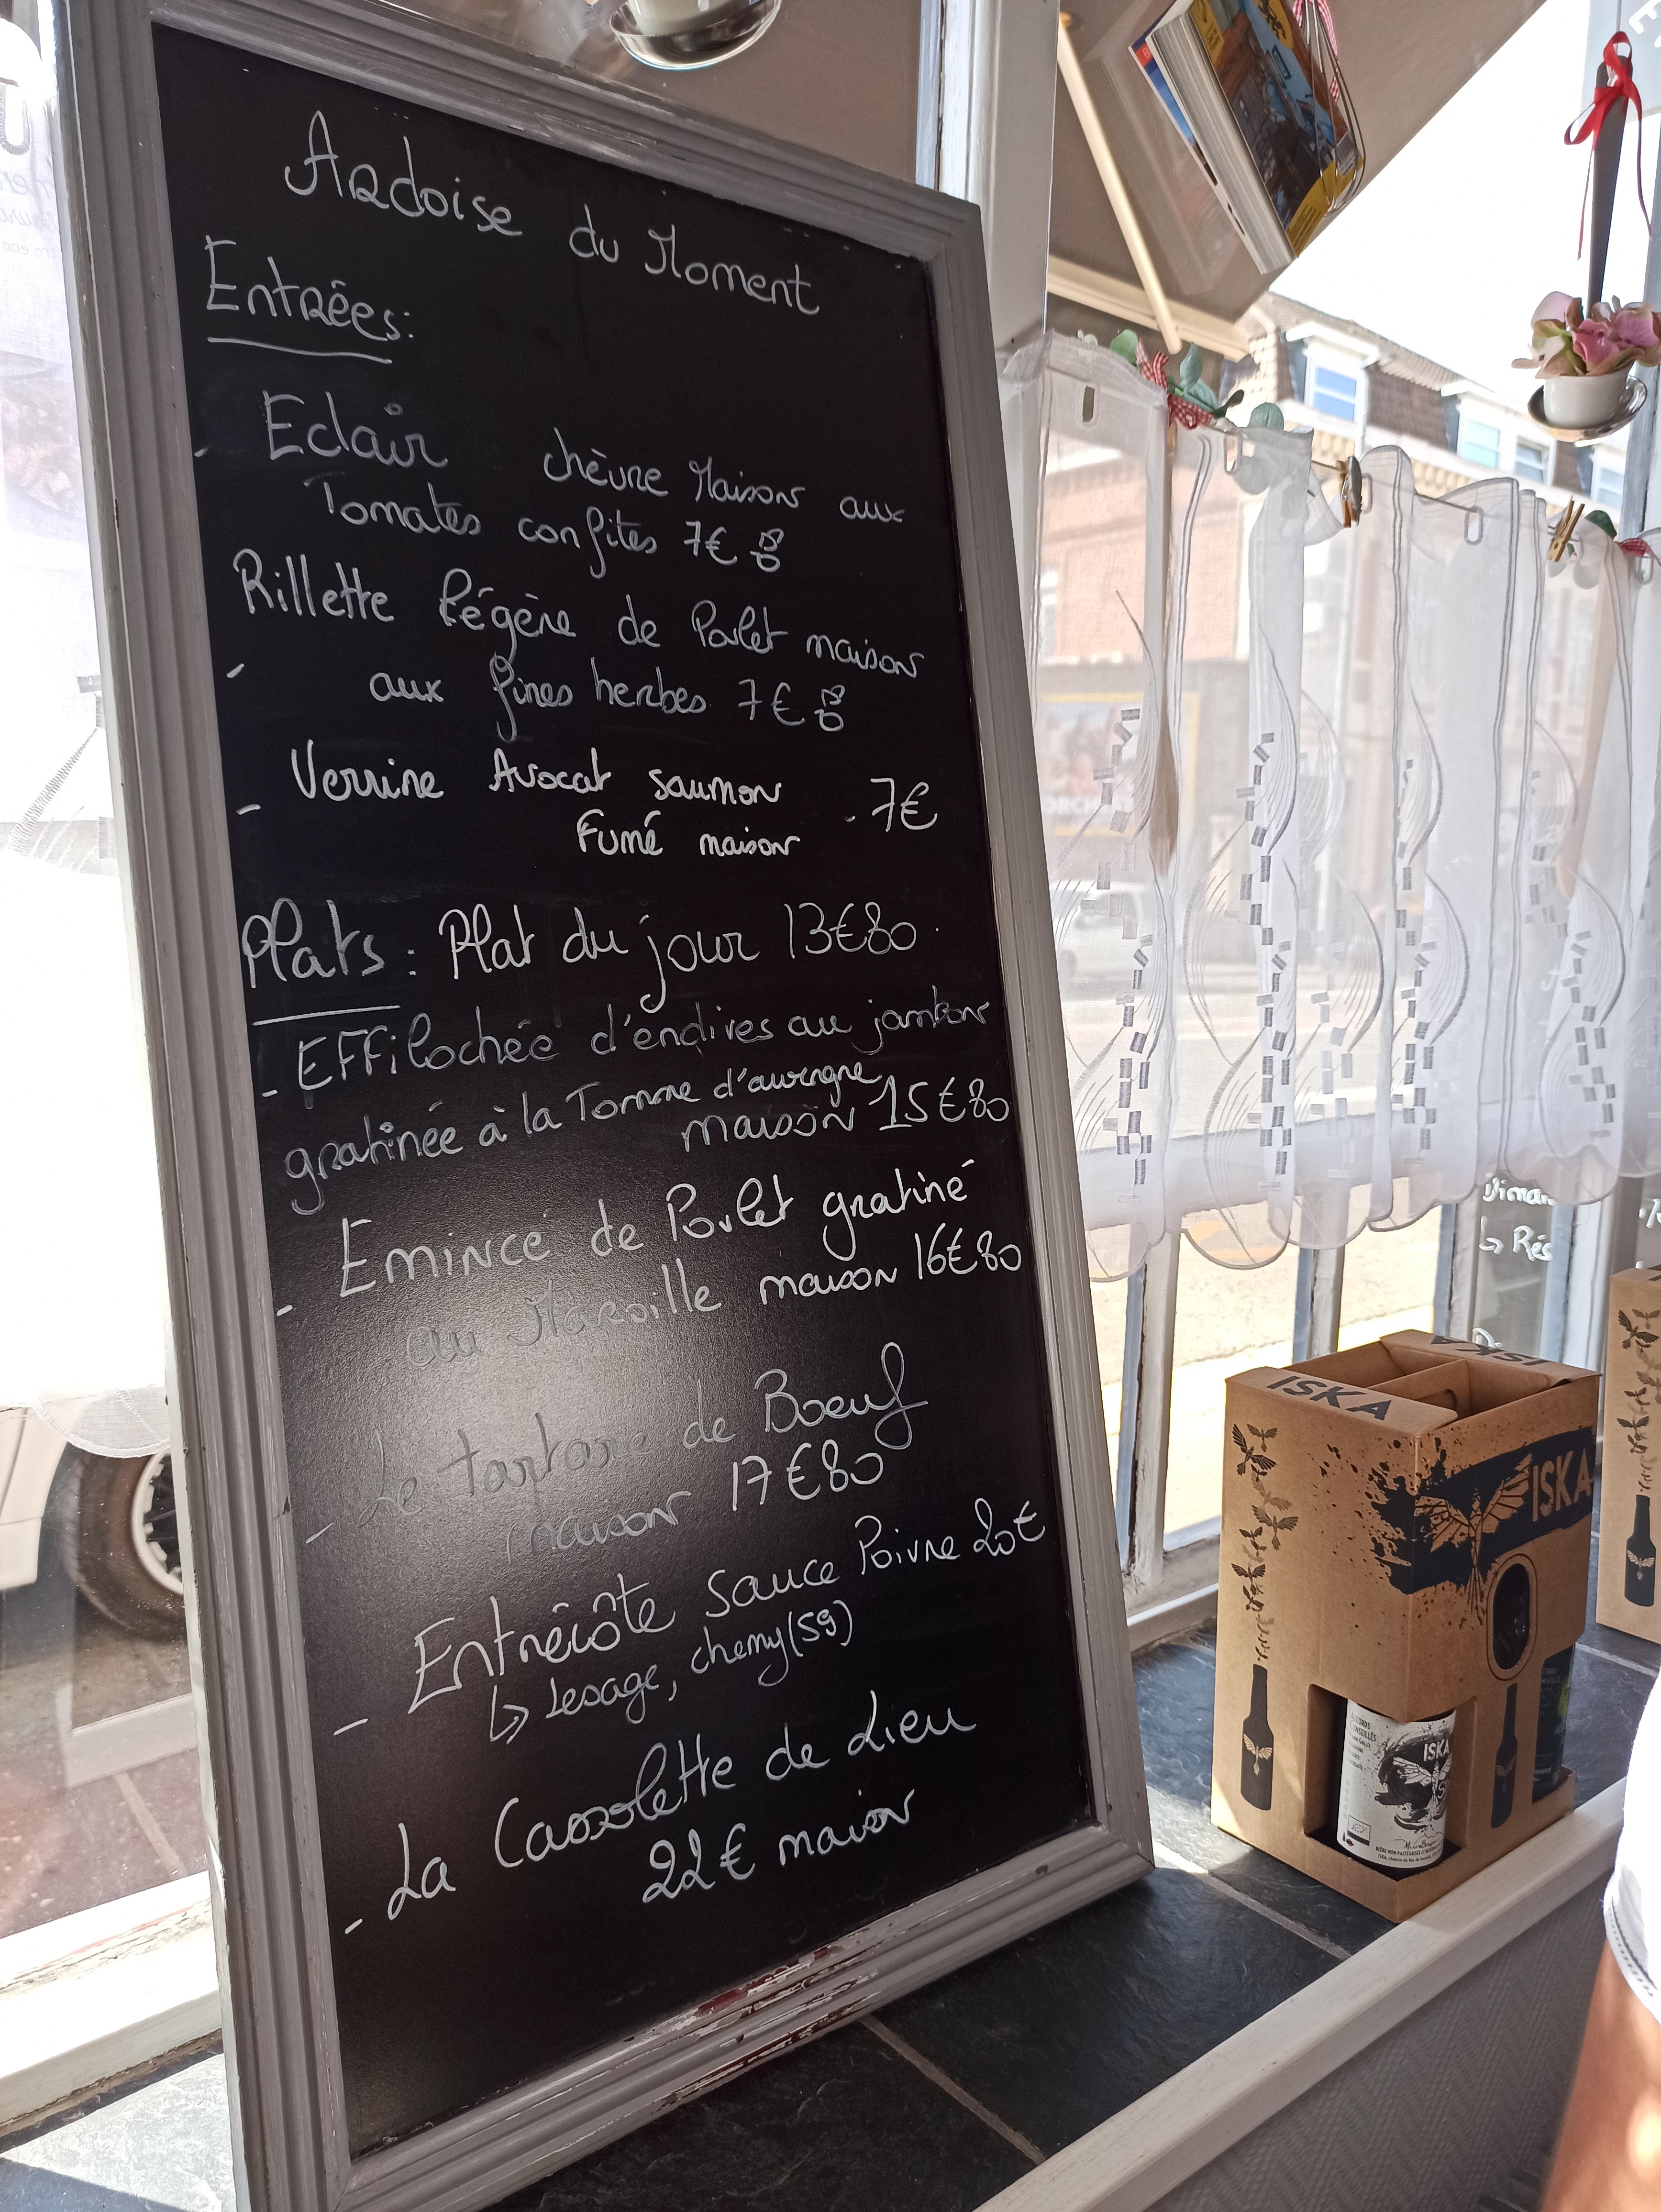 Ardoise du Moment
Entrées:
- Eclair chèvre Maison aux
Tomates confites 7€
Rillette légère de Poulet maison
- aux fines herbes 7€
- Verrine Avocat saumon . 7€
Fumé maison
Plats : Plat du jour 13€80.
- Effilochée d'endives au jambon
gratinée à la Tomme d'auvergne
maison 15€80
- Emincé de Poulet gratiné
au Maroille maison 16€80
- Le tartare de Boeuf
maison 17€80
- Entrêcôte Sauce Poivre 20€
↳ Lesage, chemy (59)
- La Cassolette de Lieu
22€ maison
ISKA
ISKA
ISKA
ISKA
↳ Rés